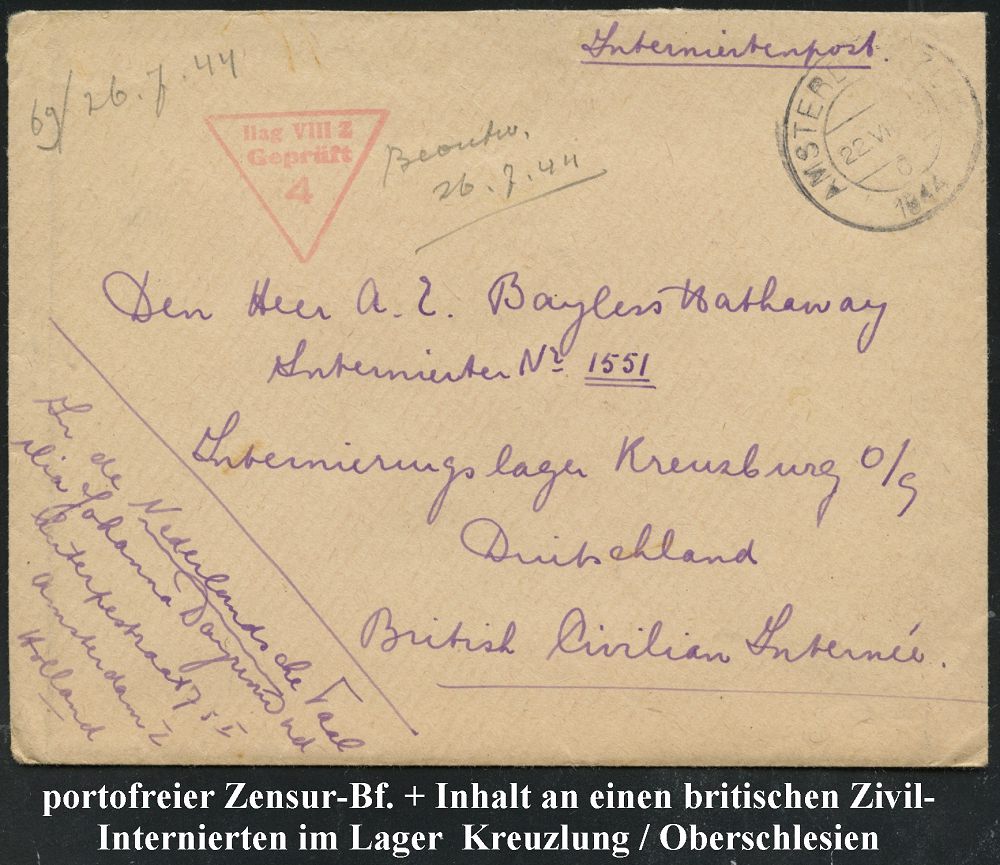 Interniertenpost.
69/26.7.44
Ilag VIII Z
Geprüft
4
Beantw.
26.7.44
AMSTERD
22 VI
6
1944
Den Heer A. E. Bayless Hathaway
Internierter Nr. 1551
Internierungslager Kreuzburg O/S
Duitschland
British Civilian Internée.
In de Nederlandsche Taal
Johanna
Euterpestraat 75 I
Amsterdam Z
Holland
portofreier Zensur-Bf. + Inhalt an einen britischen Zivil-
Internierten im Lager Kreuzlung / Oberschlesien